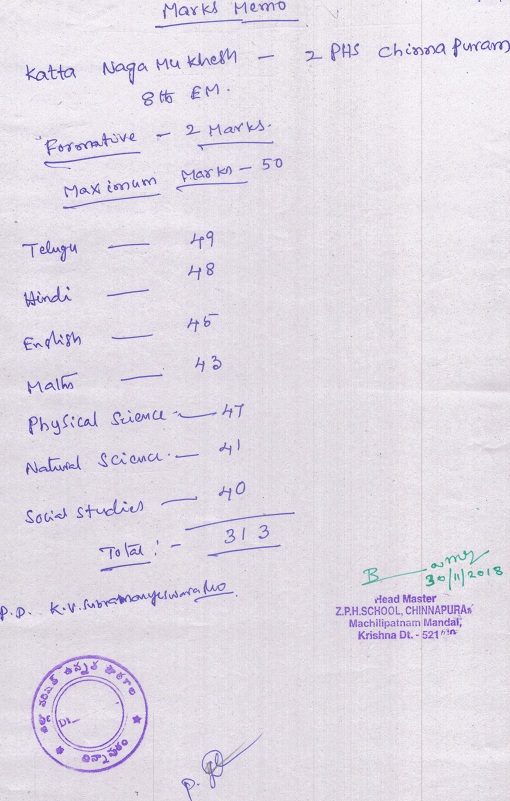 Marks Memo
Katta Naga Mukhesh — 2 PHS Chinnapuram
8th EM.
Formative - 2 Marks.
Maximum Marks - 50
Telugu — 49
Hindi — 48
English — 45
Maths — 43
Physical Science - — 47
Natural Science - — 41
Social Studies — 40
Total :- 313
30/11/2018
Head Master
Z.P.H.SCHOOL, CHINNAPURA
Machilipatnam Mandal,
Krishna Dt. - 521
P.D. K.V.
జిల్లా పరిషత్ ఉన్నత పాఠశాల
చిన్నాపురం